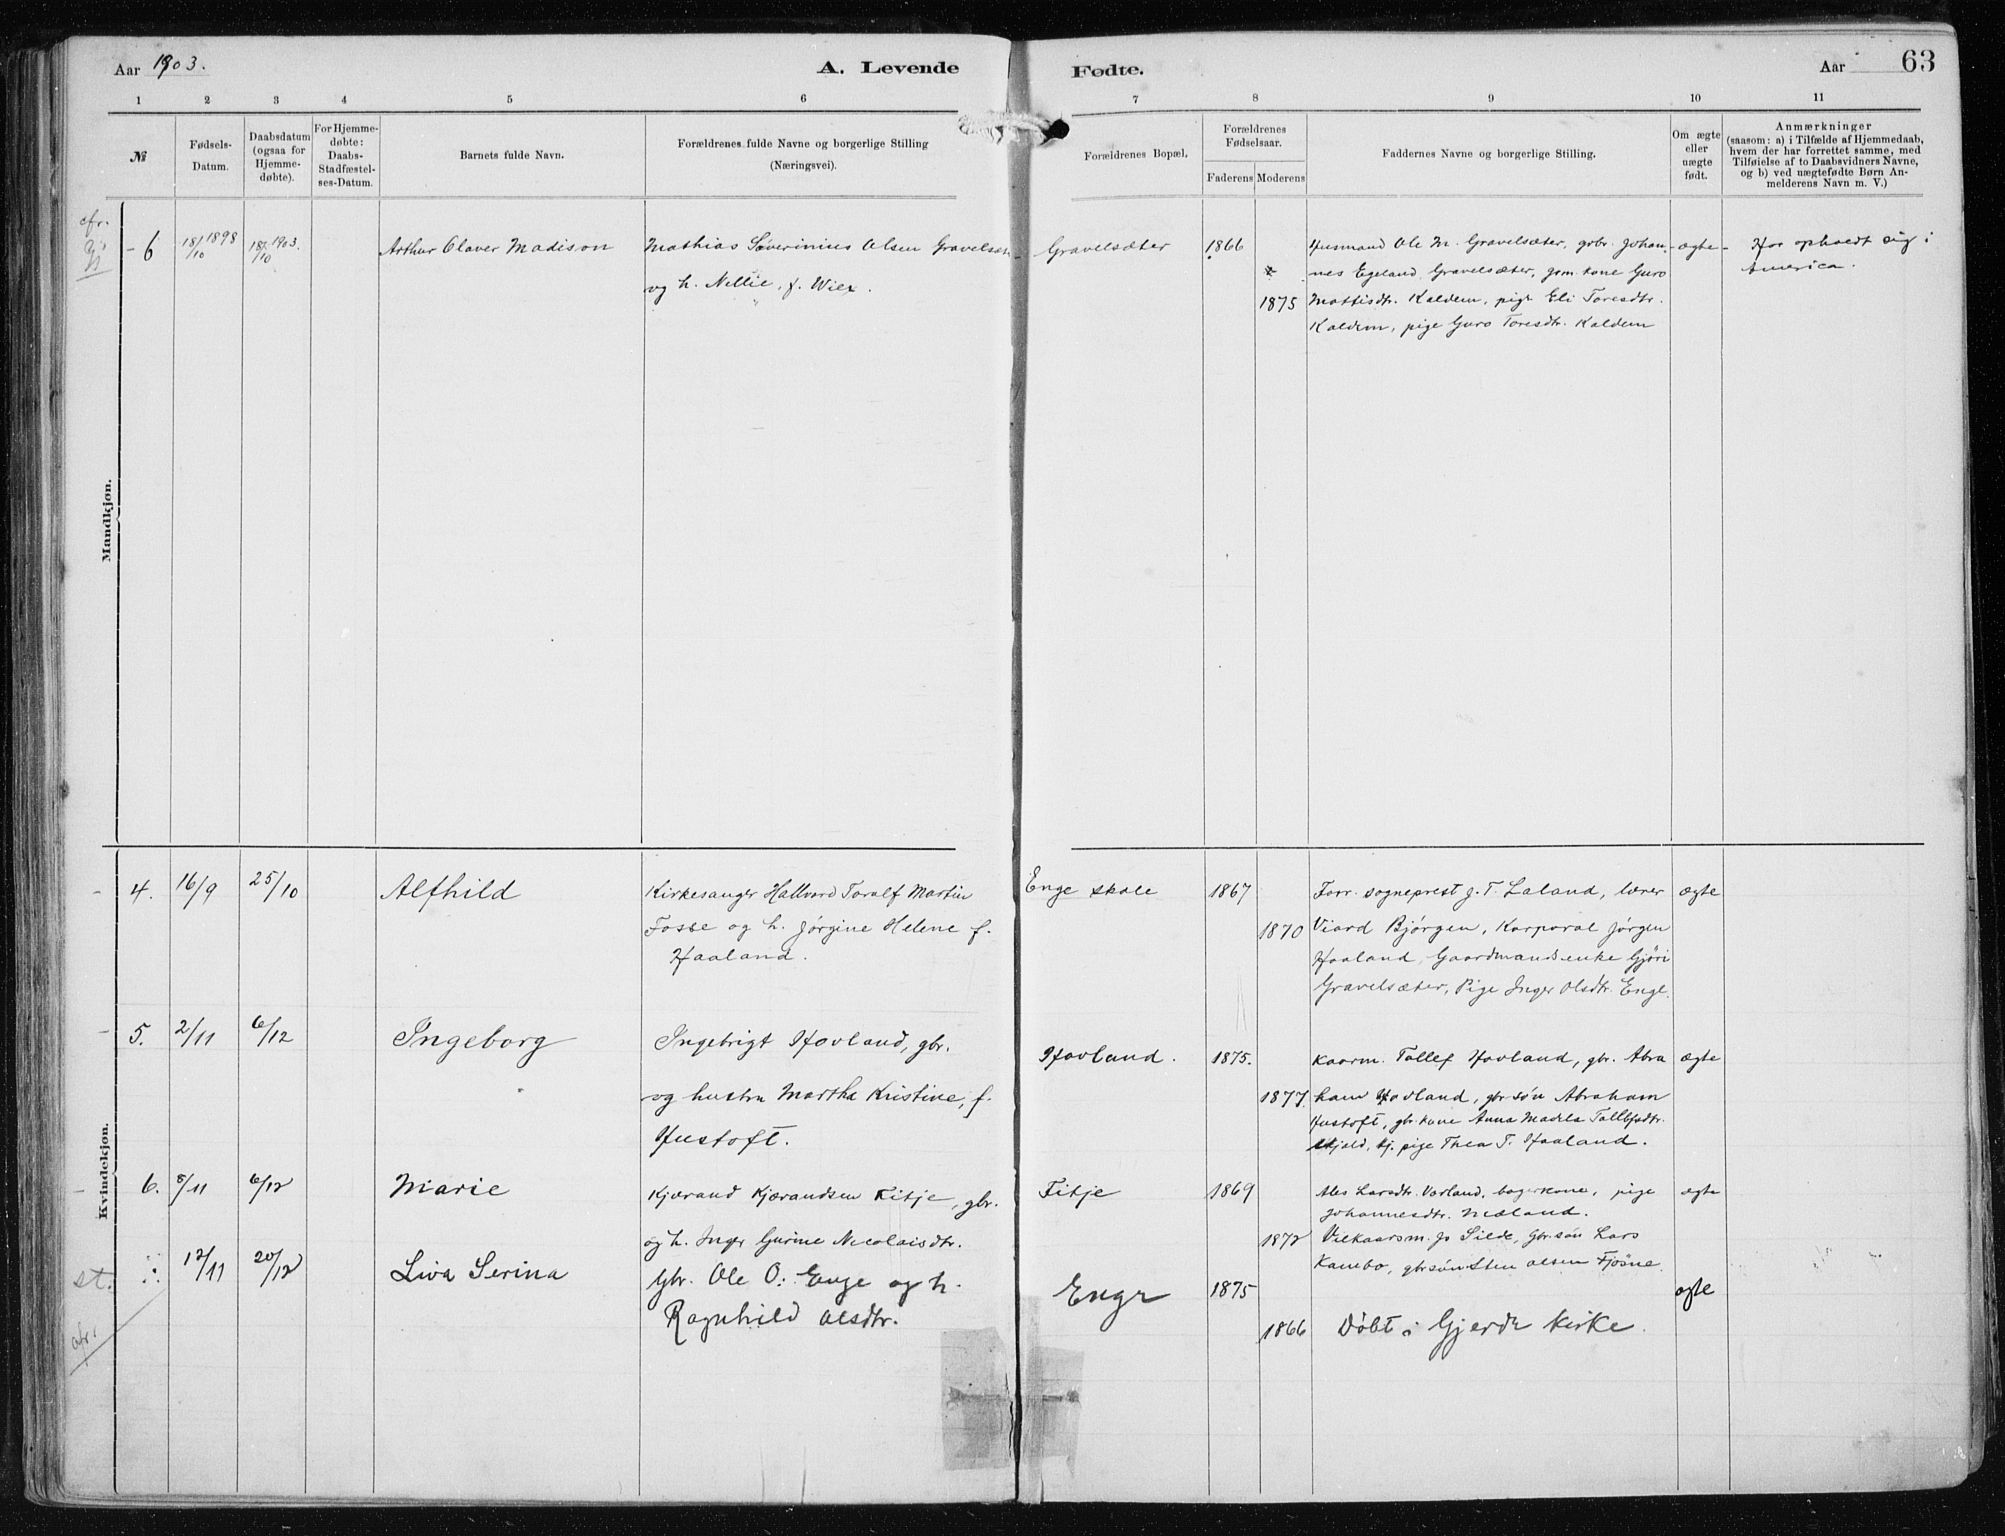 Aar 1903. A. Levende Fødte. Aar 63
1 2 3 4 5 6 7 8 9 10 11
№
Fødsels-
Datum.
Daabsdatum
(ogsaa for
Hjemme-
døbte).
For Hjemme-
døbte:
Daabs-
Stadfæstel-
ses-Datum.
Barnets fulde Navn.
Forældrenes fulde Navne og borgerlige Stilling
(Næringsvei).
Forældrenes Bopæl.
Forældrenes
Fødselsaar.
Faderens Moderens
Faddernes Navne og borgerlige Stilling.
Om ægte
eller
uægte
født.
Anmærkninger
(saasom: a) i Tilfælde af Hjemmedaab,
hvem der har forrettet samme, med
Tilføielse af to Daabsvidners Navne,
og b) ved uægtefødte Børn An-
melderens Navn m. V.)
Mandkjøn.
cfr.
6 18/10 1898 18/10 1903. Arthur Claver Madison
Mathias Severinius Olsen Gravelsæter
og h. Nellie, f. Wiex.
Gravelsæter 1866
1875
Husmand Ole M. Gravelsæter, gbr. Johan-
nes Egeland Gravelsæter, gm. kone Guro
Mattisdtr. Kaldem, pige Eli Toresdtr.
Kaldem, pige Guro Toresdtr. Kaldem
ægte
Har opholdt sig i
America.
Kvindekjøn.
4. 16/9 25/10 Alfhild
Kirkesanger Hallvard Toralf Martin
Fosse og h. Jørgine Helene f.
Haaland.
Enge skole 1867
1870
Forr. sogneprest J. T. Laland, lærer
Viard Bjørgen, Korporal Jørgen
Haaland, Gaardmandsenke Gjøri
Gravelsæter, Pige Inger Olsdtr. Enge.
ægte
5. 2/11 6/12 Ingeborg
Ingebrigt Hovland, gbr.
og hustru Martha Kristine, f.
Hustoft.
Hovland. 1875.
1877.
Kaarm. Tollef Hovland, gbr. Abra
ham Hovland, gbr søn Abraham
Hustoft, gbr. kone Anna Tollefsdtr.
Skjold, hj. pige Thea T. Haaland.
ægte
6. 8/11 6/12 Marie
Kjærand Kjærandsen Fitje, gbr.
og h. Inger Gurine Nicolaisdtr.
Fitje 1869
1872
Larsdtr. Vorland, bagerkone, pige
Johannesdtr. Mæland.
Vilkaarsm. Js Silde, gbr. søn Lars
Kambo, gbr søn Sten Olsen Fjøsne.
ægte
st.
cfr.
12/11 20/12 Liva Serina
Gbr. Ole O: Enge og h.
Ragnhild Olsdtr.
Enge 1875
1866
Døbt i Gjerde kirke.
ægte